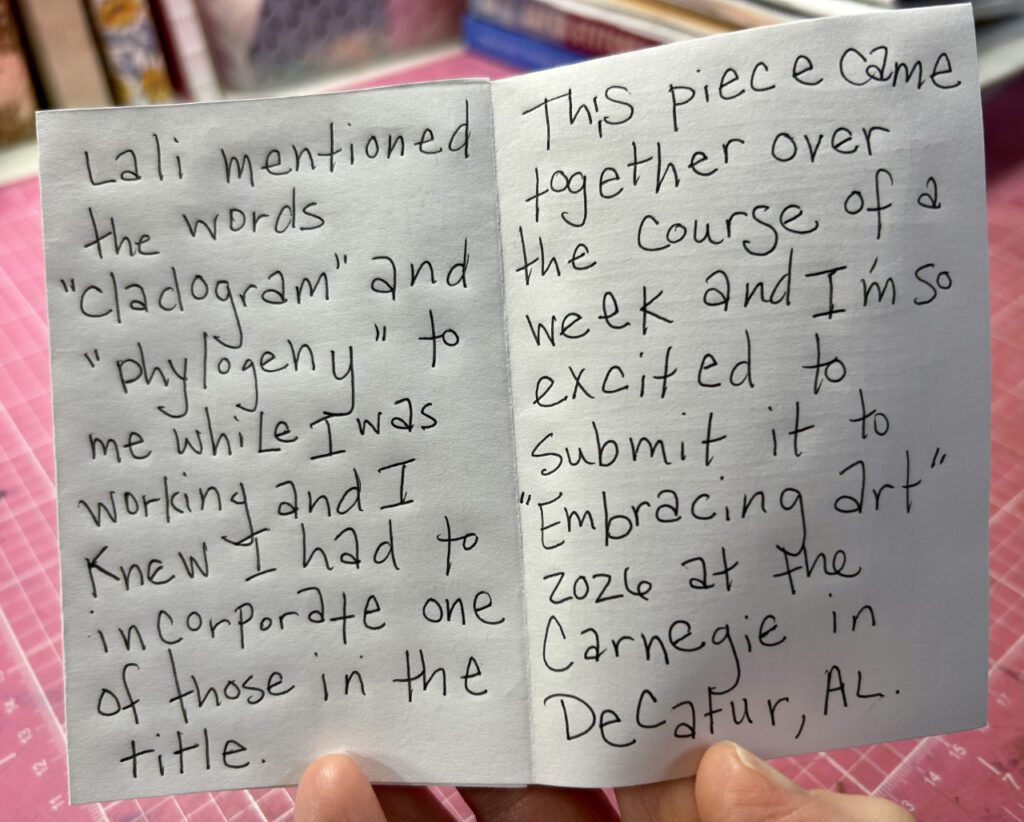 Lali mentioned
the words
"cladogram" and
"phylogeny" to
me while I was
working and I
knew I had to
incorporate one
of those in the
title.
This piece came
together over
the course of a
week and I'm so
excited to
submit it to
"Embracing art"
2026 at the
Carnegie in
Decatur, AL.